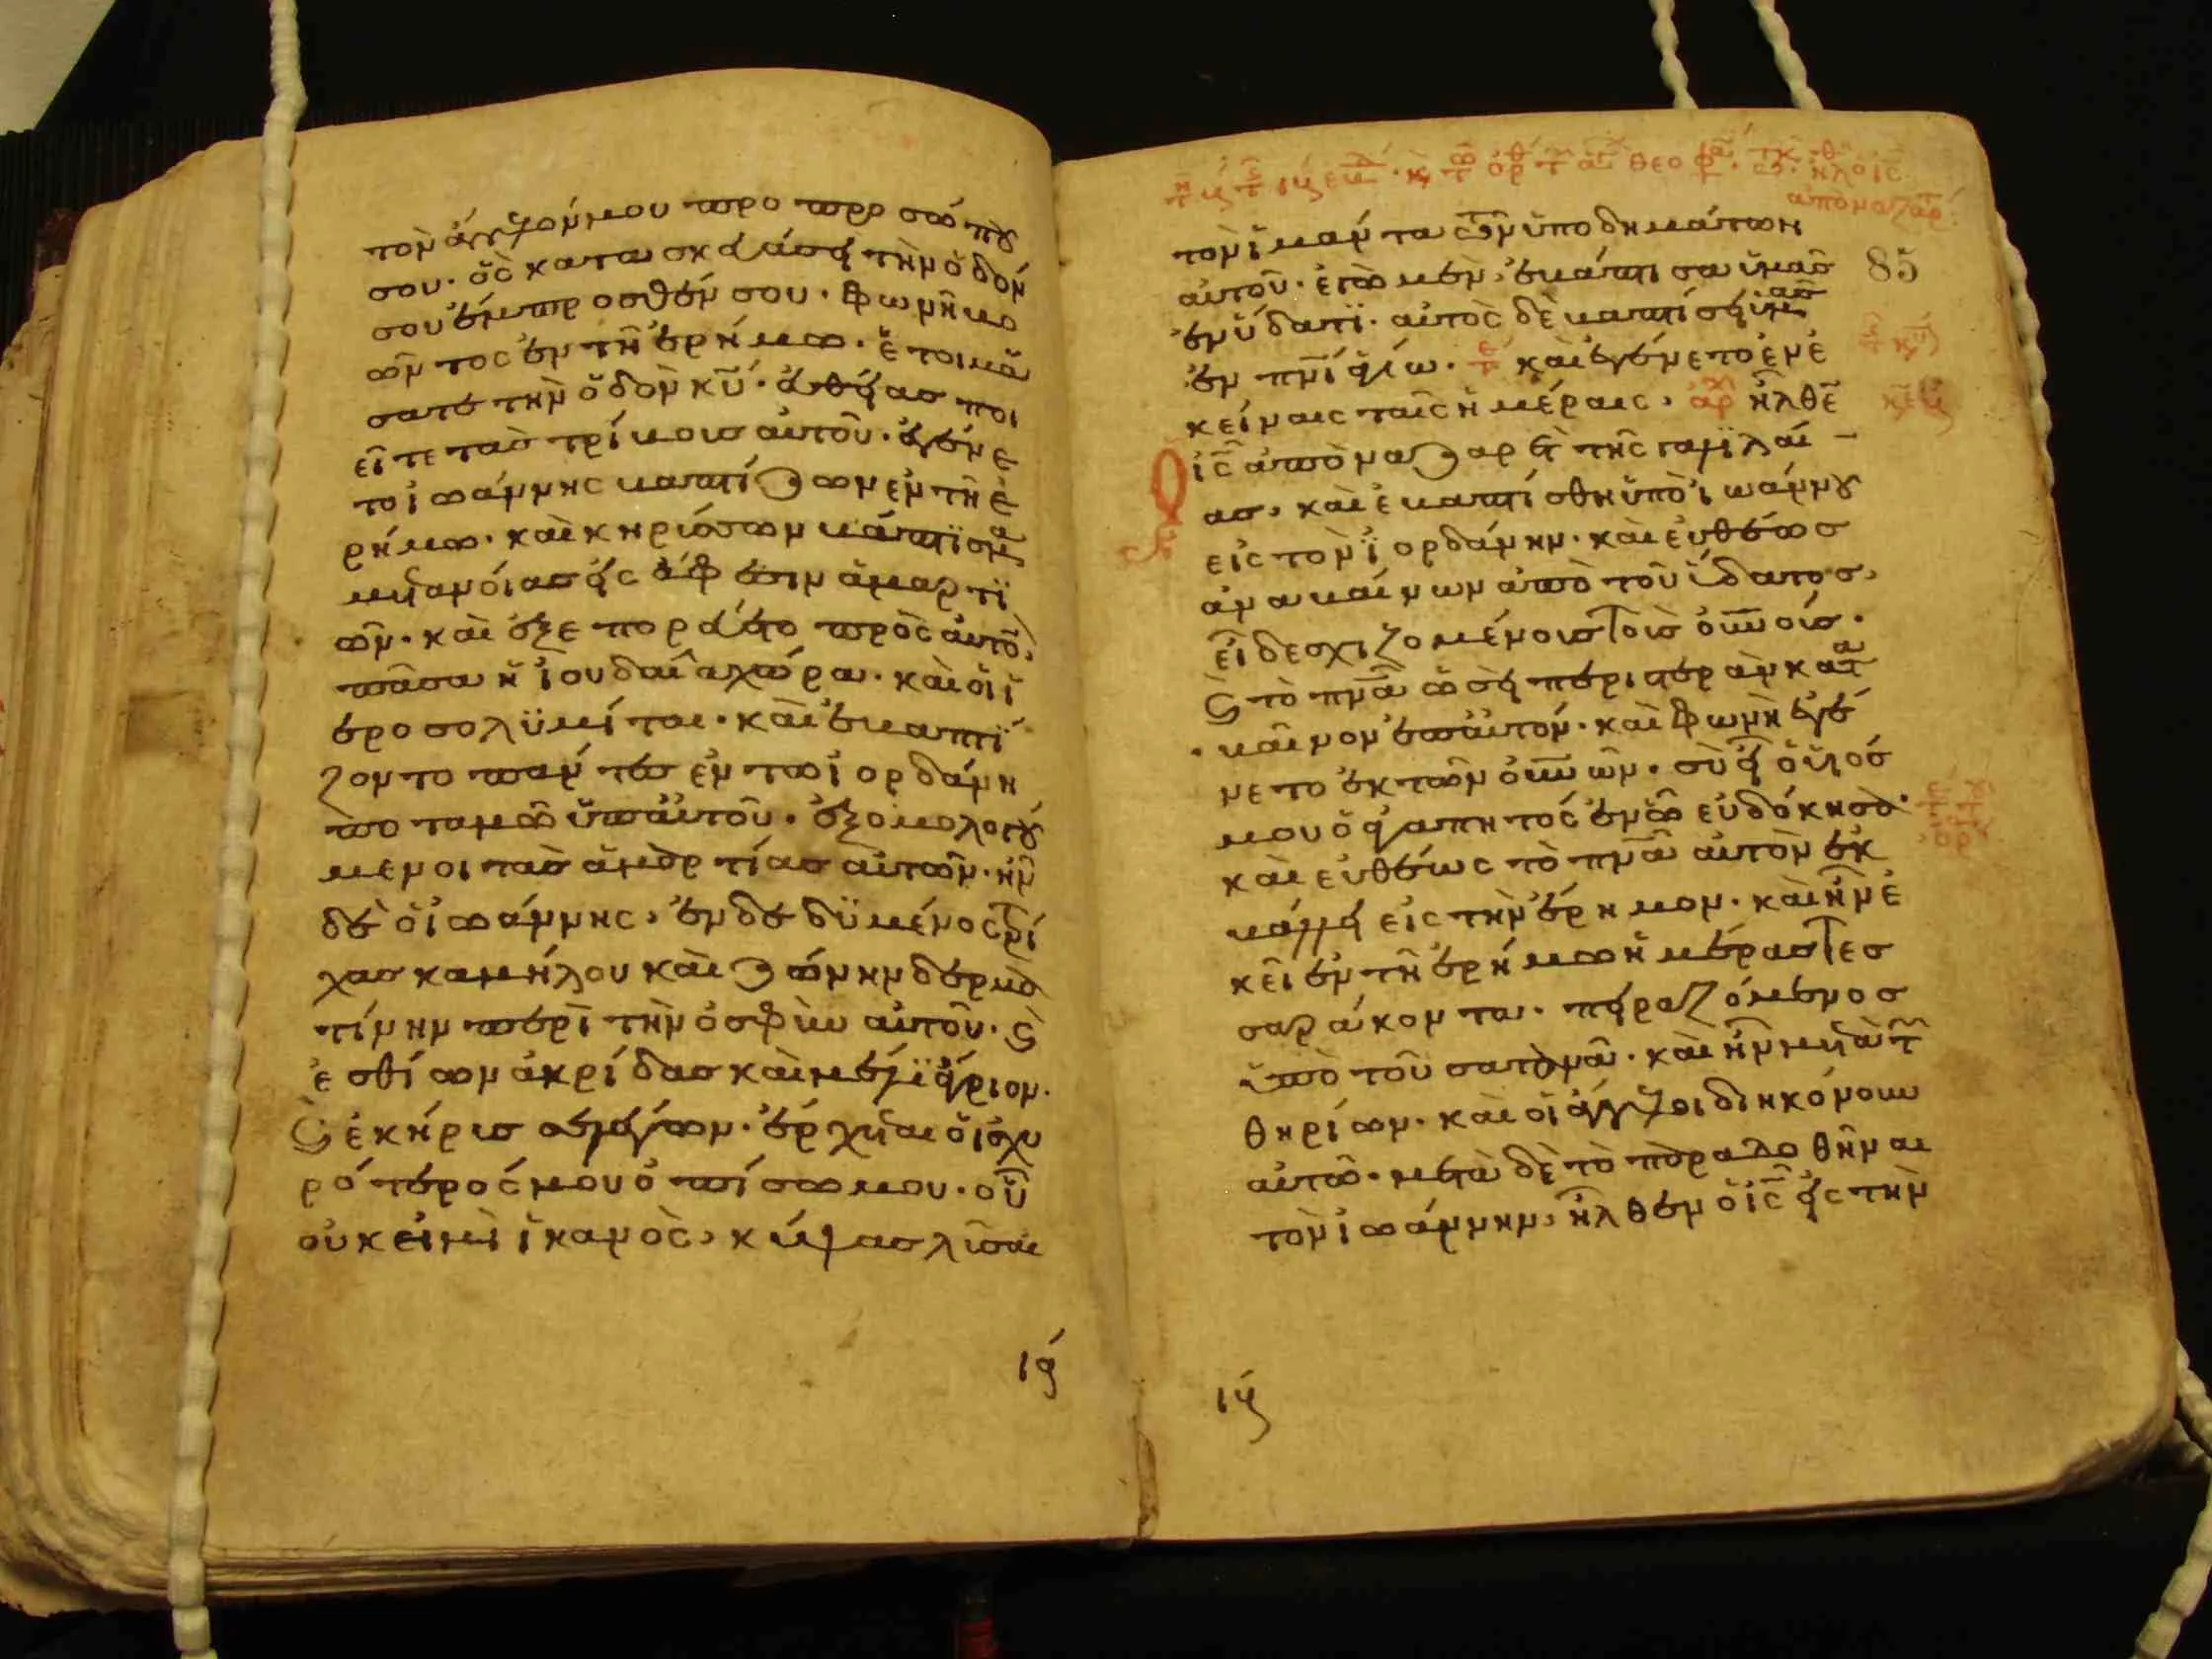 τὸν ἄγγελόν μου προ προσώπου
σου· ὃς κατασκευάσει τὴν ὁδόν
σου ἔμπροσθέν σου· φωνὴ βο
ῶντος ἐν τῆ ἐρήμω· ἑτοιμά
σατε τὴν ὁδὸν κυ· εὐθείας ποι
εῖτε τὰς τρίβους αὐτοῦ· ἐγένε
το ἰωάννης βαπτίζων ἐν τῆ ἐ
ρήμω· καὶ κηρύσσων βάπτισμα
μετανοίας εἰς ἄφεσιν ἁμαρτι
ῶν· καὶ ἐξεπορεύετο πρὸς αὐτὸν
πᾶσα ἡ ἰουδαία χώρα· καὶ οἱ ἱ
εροσολυμίται· καὶ ἐβαπτί
ζοντο πάντες ἐν τῶ ἰορδάνη
ποταμῶ ὑπ' αὐτοῦ· ἐξομολογού
μενοι τὰς ἁμαρτίας αὐτῶν· ἦν
δὲ ὁ ἰωάννης, ἐνδεδυμένος τρί
χας καμήλου καὶ ζώνην δερμα
τίνην περὶ τὴν ὀσφὺν αὐτοῦ· ϗ
ἐσθίων ἀκρίδας καὶ μέλι ἄγριον·
ϗ ἐκήρυσσε λέγων· ἔρχεται ὁ ἰσχυ
ρότερός μου ὀπίσω μου· οὗ
οὐκ εἰμὶ ἱκανὸς, κύψας λῦσαι
ις
τὸν ἱμάντα τῶν ὑποδημάτων
αὐτοῦ· ἐγὼ μὲν ἐβάπτισα ὑμᾶς
ἐν ὕδατι· αὐτὸς δὲ βαπτίσει ὑμᾶς
ἐν πνι ἁγίω· καὶ ἐγένετο ἐν ἐ
κείναις ταῖς ἡμέραις, ἀρχ ἦλθεν
ὁ ις ἀπὸ ναζαρὲτ τῆς γαλιλαί
ας, καὶ ἐβαπτίσθη ὑπὸ ἰωάννου
εἰς τὸν ἰορδάνην· καὶ εὐθέως
ἀναβαίνων ἀπὸ τοῦ ὕδατος,
εἶδε σχιζομένους τοὺς οὐνούς·
ϗ τὸ πνα ὡσεὶ περιστερὰν κατα
βαῖνον ἐπ' αὐτόν· καὶ φωνὴ ἐγέ
νετο ἐκ τῶν οὐνῶν· σὺ εἶ ὁ υἱός
μου ὁ ἀγαπητός ἐν ᾧ εὐδόκησα·
καὶ εὐθέως τὸ πνα αὐτὸν ἐκ
βάλλει εἰς τὴν ἔρημον· καὶ ἦν ἐ
κεῖ ἐν τῆ ἐρήμω ἡμέρας τεσ
σαράκοντα· πειραζόμενος
ὑπὸ τοῦ σατανᾶ· καὶ ἦν μετὰ τῶν
θηρίων· καὶ οἱ ἄγγελοι διηκόνουν
αὐτῶ· μετὰ δὲ τὸ παραδοθῆναι
τὸν ἰωάννην, ἦλθεν ὁ ις εἰς τὴν
85